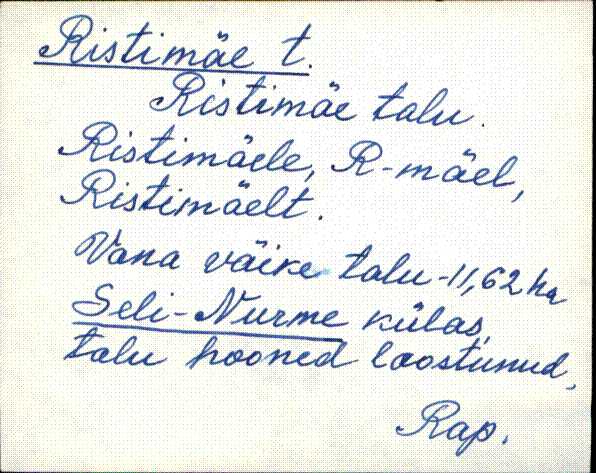 Ristimäe t.
Ristimäe talu.
Ristimäele, R-mäel,
Ristimäelt.
Vana väike talu - 11,62 ha
Seli-Nurme külas,
talu hooned laostunud,
Rap.